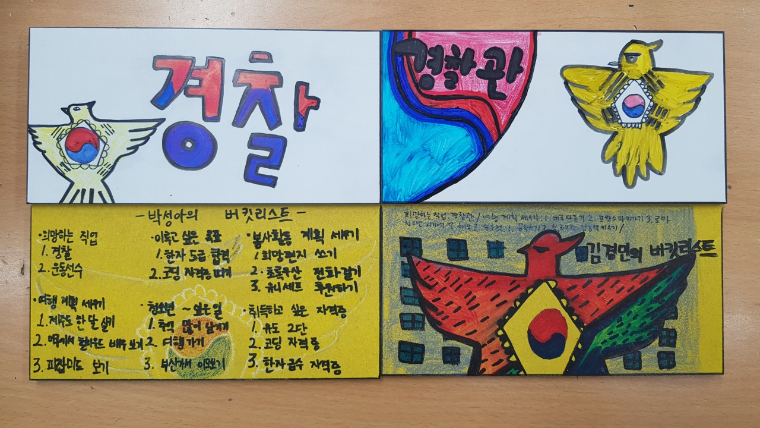 경찰
경찰관
-박성아의 버킷리스트-
•희망하는 직업
1. 경찰
2. 운동선수
•이루고 싶은 목표
1. 한자 급 합격
2. 코딩 자격증 따기
•봉사활동 계획 세우기
1. 희망편지 쓰기
2. 초록우산 전화걸기
3. 유니세프 후원하기
•여행 계획 세우기
1. 제주도 한 달 살기
2. 할리우드 배우 보기
3. 피라미드 보기
•청소년 ~ 싶은 일
1. 추억 많이 쌓기
2. 여행가기
3. 부산가서
•취득하고 싶은 자격증
1. 유도 2단
2. 코딩 자격증
3. 한자 급수 자격증
희망하는 직업: 경찰관 / 여행 계획 세우기: 1.
김경민의 버킷리스트